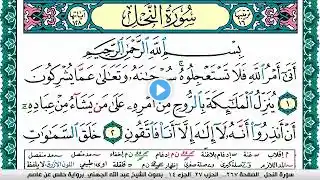 سُورَةُ النَّحْلِ
بِسْمِ اللَّهِ الرَّحْمَٰنِ الرَّحِيمِ
أَتَىٰ أَمْرُ اللَّهِ فَلَا تَسْتَعْجِلُوهُ سُبْحَٰنَهُۥ وَتَعَٰلَىٰ عَمَّا يُشْرِكُونَ
١ يُنَزِّلُ الْمَلَٰٓئِكَةَ بِالرُّوحِ مِنْ أَمْرِهِۦ عَلَىٰ مَن يَشَآءُ مِنْ عِبَادِهِۦٓ
أَنْ أَنذِرُوٓا أَنَّهُۥ لَآ إِلَٰهَ إِلَّآ أَنَا۠ فَاتَّقُونِ ٢ خَلَقَ السَّمَٰوَٰتِ
سورة النحل الصفحة ٢٦٧ الحزب ٢٧ الجزء ١٤ بصوت الشيخ عبد الله الجهني برواية حفص عن عاصم